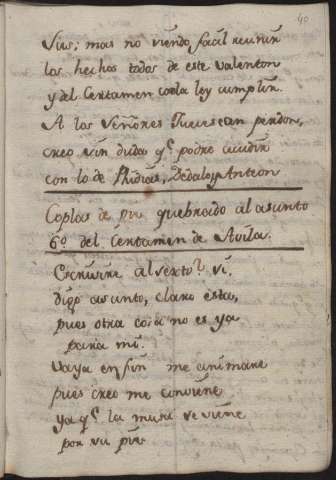 40
sius; mas no siendo facil reunir
los hechos todos de este valenton
y del Certamen con la ley cumplir.
A los Señores Jueces can perdon,
creo sin duda qe. podre acudir
con lo de Phidias, Dedalo y Anteon
Coplas de pie quebrado al asunto
6o. del Certamen de Avila.
Escrivire al sexto? si,
digo asunto, claro esta,
pues otra cosa no es ya
para mi.
Vaya en fin me animare
pues creo me conviene
ya qe. la musa se viene
por su pie